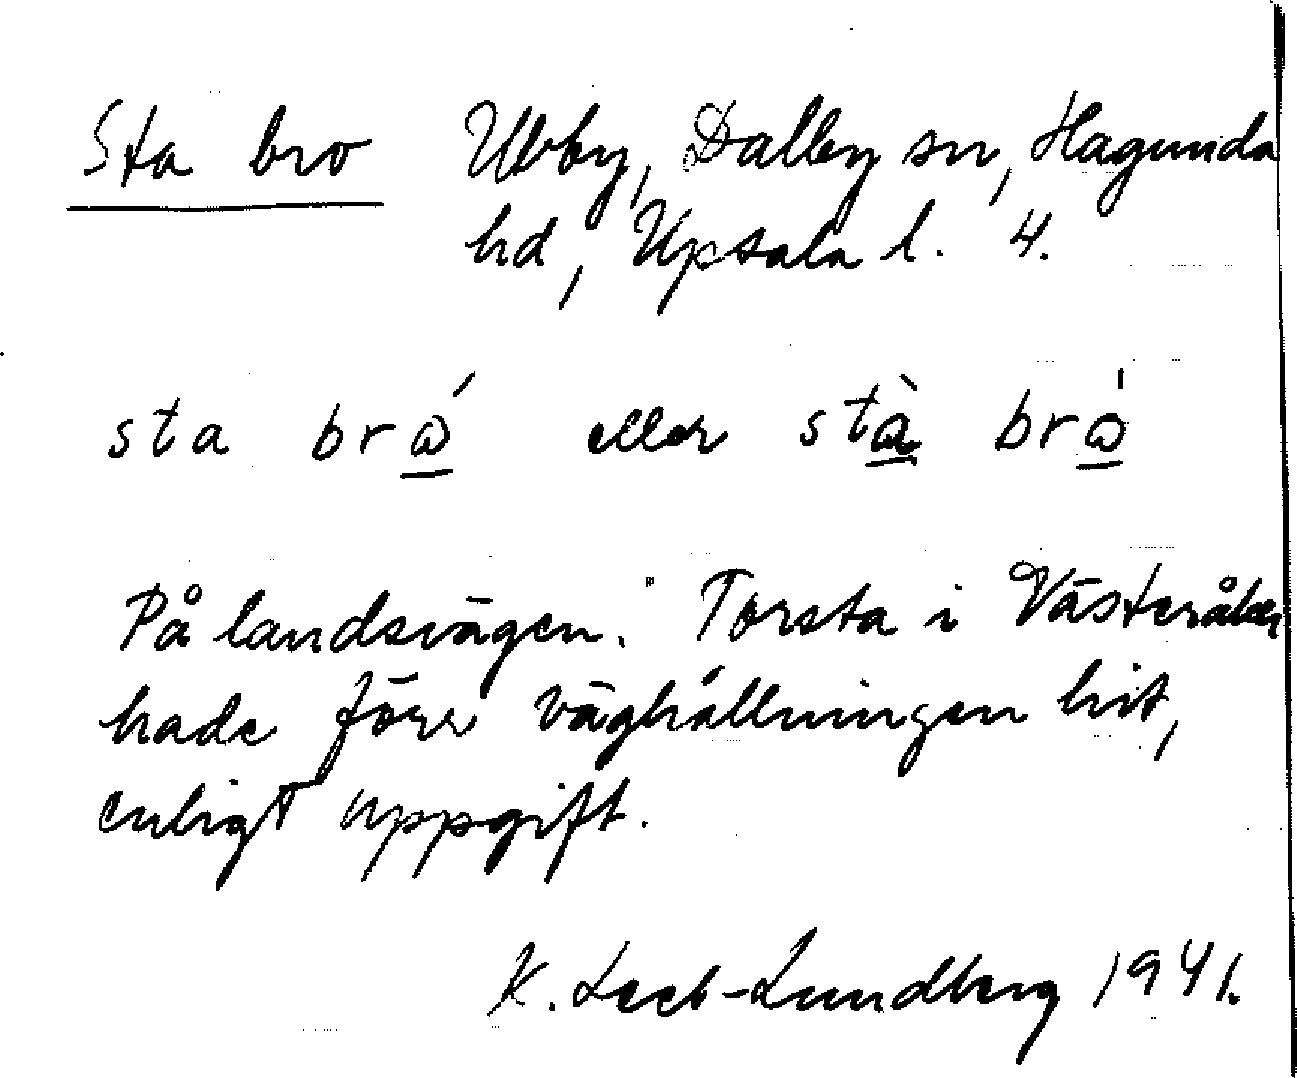 Sta bro Ubby, Dalby sn, Hagunda
hd, Upsala l. 4.
sta brώ eller stà brώ
På landsvägen. Torsta i Västeråker
hade förr väghållningen hit,
enligt uppgift.
K. Leeb-Lundberg 1941.